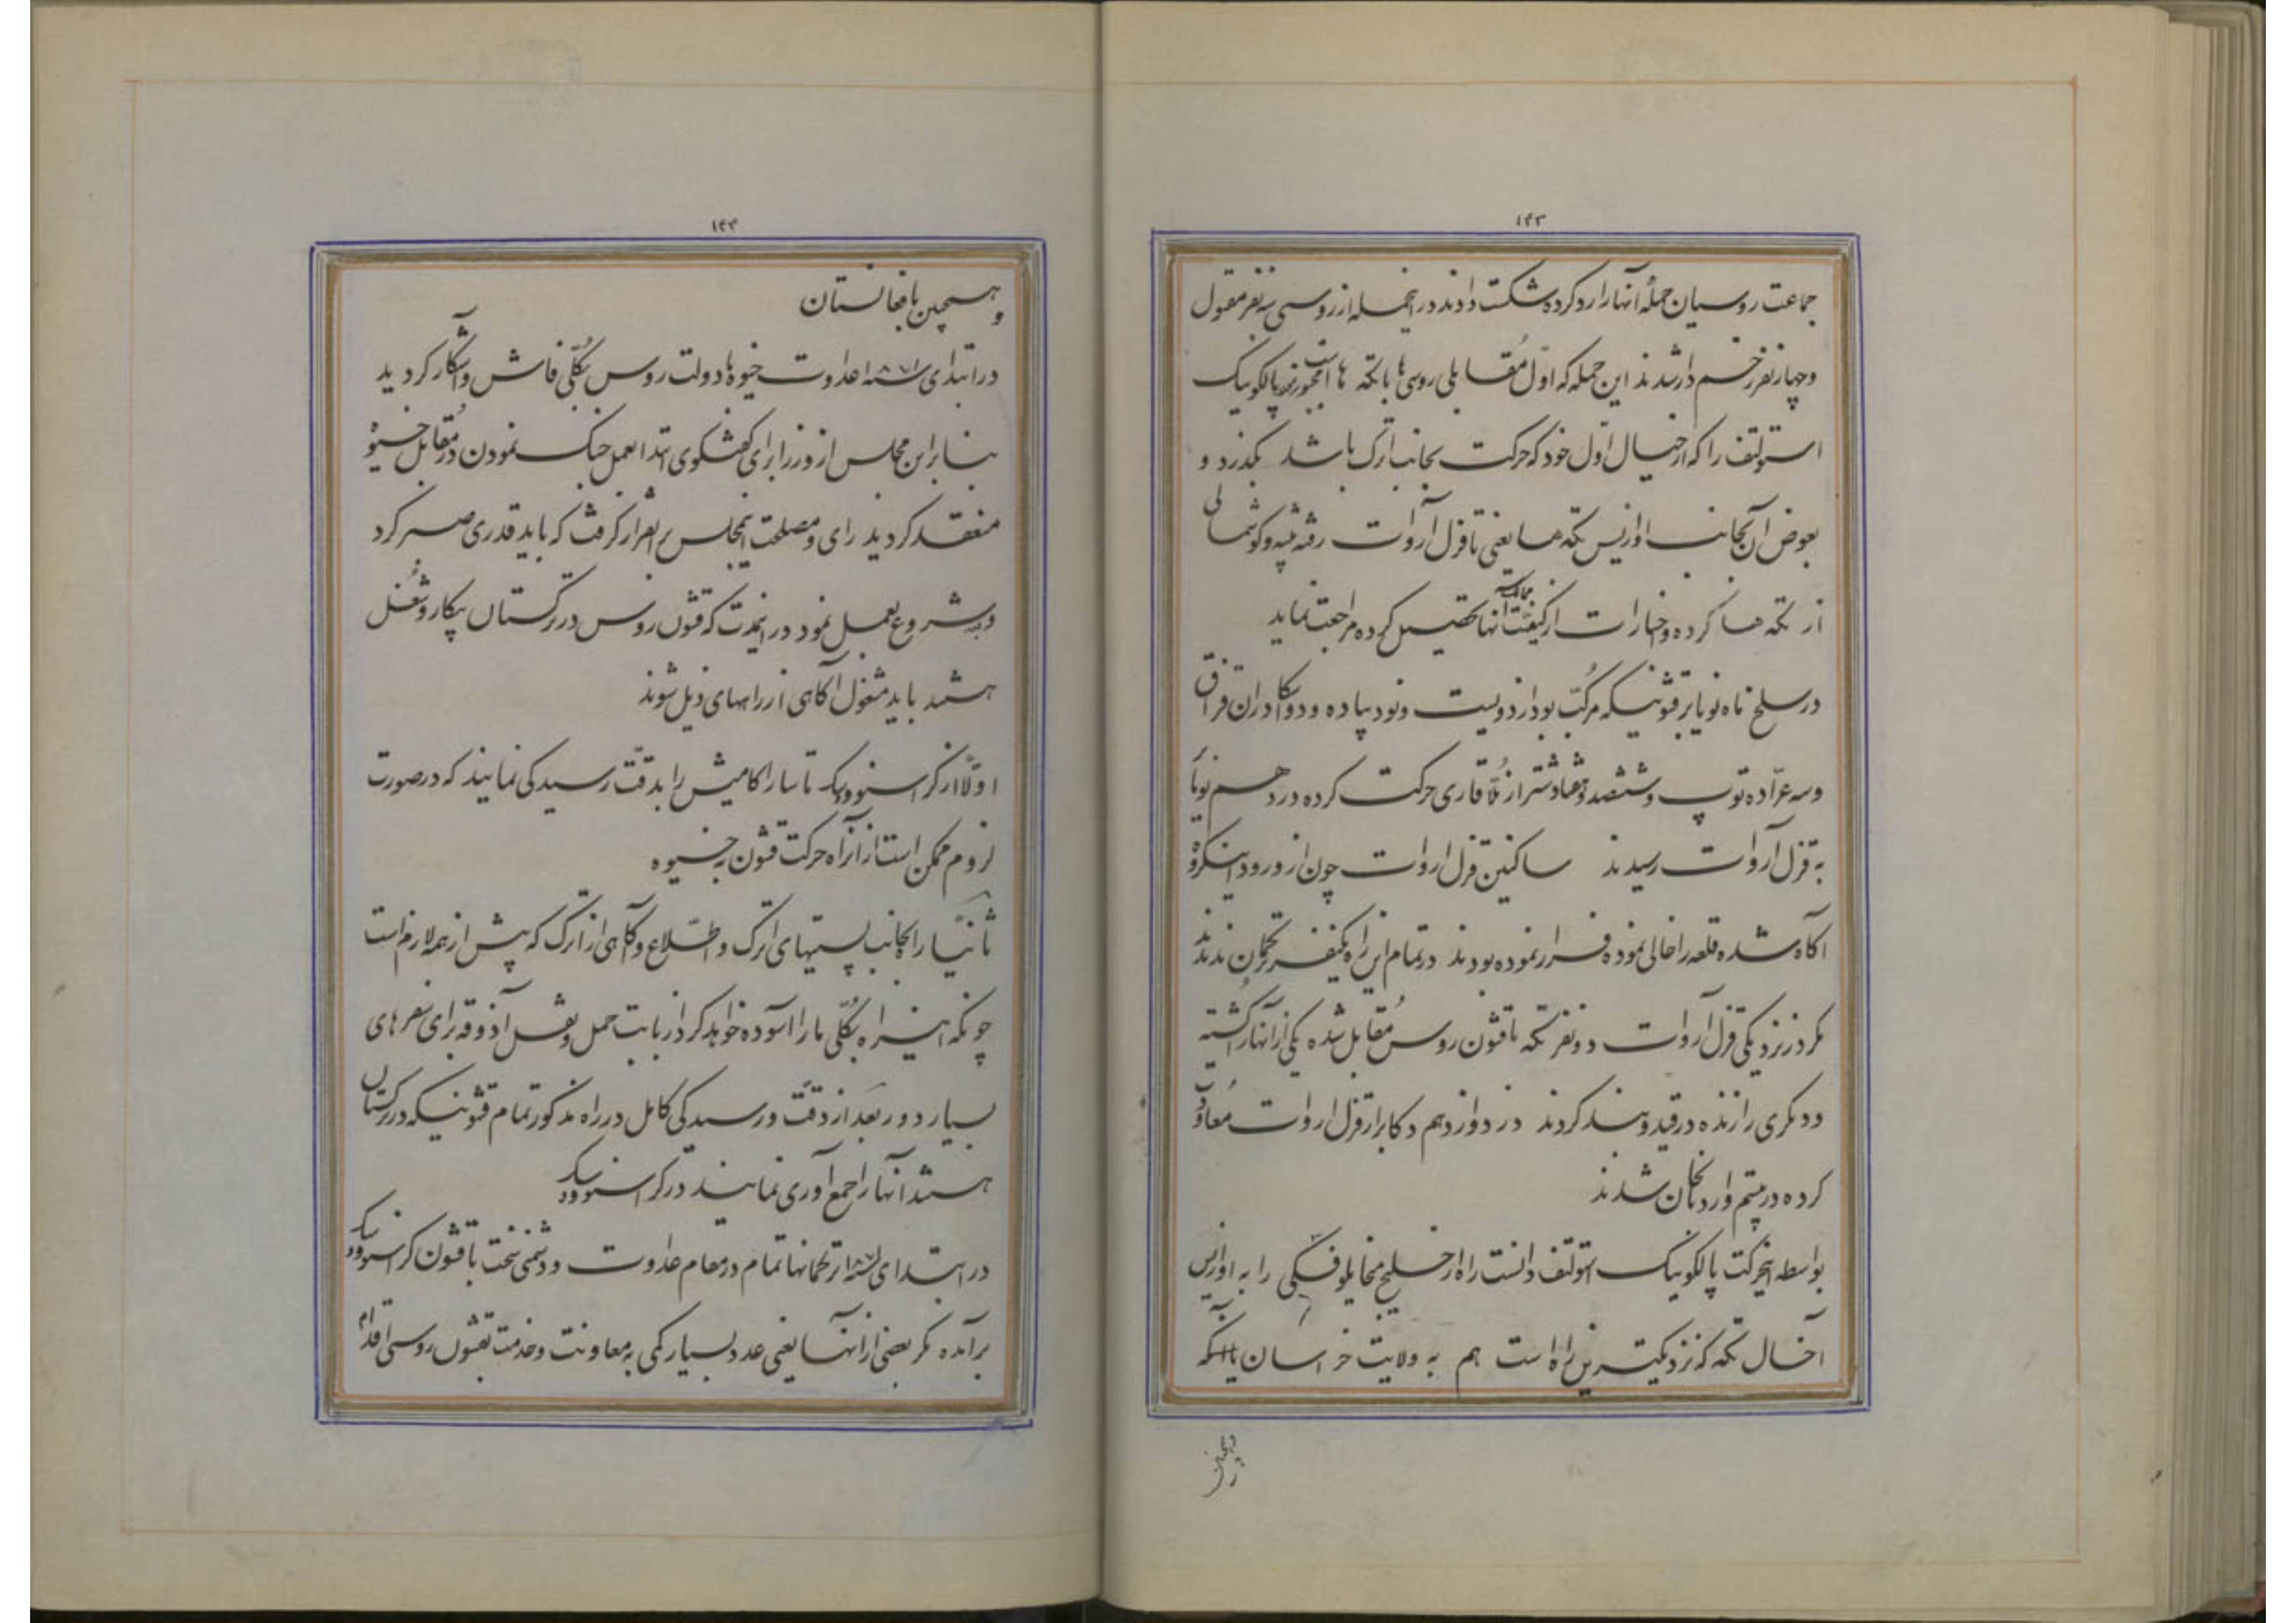 ۱۴۳
جماعت روسیان حملهٔ آنها را رد کرده شکست دادند در اینحمله از روسی سه نفر مقتول
و چهار نفر زخم دار شدند این حمله که اوّل مُقابلی روسی ها با تکه ها است پالکونیک
استولتف را که از خیال اوّل خود که حرکت بجانب اترک باشد بگذرد و
بعوض آن بجانب اوازیس تکه ها یعنی تا قزل آروات رفته تنبیه و گوشمالی
از تکه ها کرده و اخبارات از کیفیّت ممالک آنها تحصیل کرده مراجعت نماید
در سلخ ماه نویابر قشونیکه مرکّب بود از دویست و نود پیاده و دو اسکادران قزاق
و سه عرّاده توپ و ششصد و هفتاد شتر از مُلّا قاری حرکت کرده در دهم نویابر
به قزل آروات رسیدند ساکنین قزل اروات چون از ورود اینگروه
اکاه شده قلعه را خالی نموده فرار نموده بودند در تمام این راه یکنفر ترکمان ندیدند
مکر در نزدیکی قزل آروات دو نفر تکه با قشون روس مُقابل شده یکی از آنها را کُشته
و دیکری را زنده در قید و بند کردند در دوازدهم دکابر از قزل اروات مُعاودت
کرده در بیستم وارد شدند
بواسطه اینحرکت پالکونیک استولتف دانست راه از خلیج میخایلوفسکی را به اوازیس
آخال تکه که نزدیکترین راه است هم به ولایت خراسان یا اینکه
۱۴۴
و همچنین بافغانستان
در ابتدای سنه ۱۸۷۱ عداوت خیوه با دولت روس بکُلّی فاش و آشکار کردید
بنابراین مجلس از وزرا برای کفتکوی ابتدا بعمل جنک نمودن در مُقابل خیوه
منعقد کردید رای و مصلحت اینمجلس بر اینقرار کرفت که باید قدری صبر کرد
و بعد شروع بعمل نمود در اینمدت که قشون روس در ترکستان بیکار و شُغل
هستند باید مشغول آکاهی از راههای ذیل شوند
اوّلاً از کراسنوودسک تا ساراکامیش را بدقّت رسیدکی نمایند که در صورت
لزوم ممکن است از آنراه حرکت قشون به خیوه
ثانیاً راه بجانب پستیهای اترک و اطّلاع و آکاهی از اترک که بیش از همه لازم است
چونکه اینراه بکُلّی ما را آسوده خواهد کرد از بابت حمل و نقل آذوقه برای سفرهای
بسیار دور بعد از دقّت و رسیدکی کامل در راه مذکور تمام قشونیکه در ترکستان
هستند آنها را جمع آوری نمایند در کراسنوودسک
در ابتدای سنه ۱۸۷۱ ترکمانها تمام در مقام عداوت و دشمنی سخت با قشون کراسنوودسک
برآمده مکر بعضی از آنها یعنی عدد بسیار کمی به معاونت و خدمت بقشون روسی اقدام